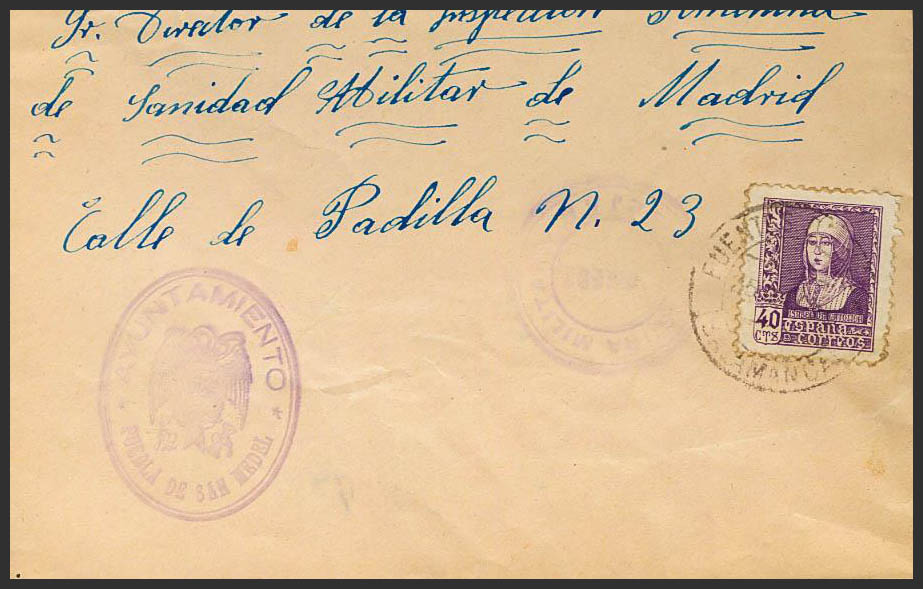 Sr. Director de la Inspección Femenina
de Sanidad Militar de Madrid
Calle de Padilla N. 23
AYUNTAMIENTO
PUEBLA DE SAN MEDEL
CENSURA MILITAR
FUENT
SALAMANCA
ISABEL LA CATOLICA
40
CTS
España
correos